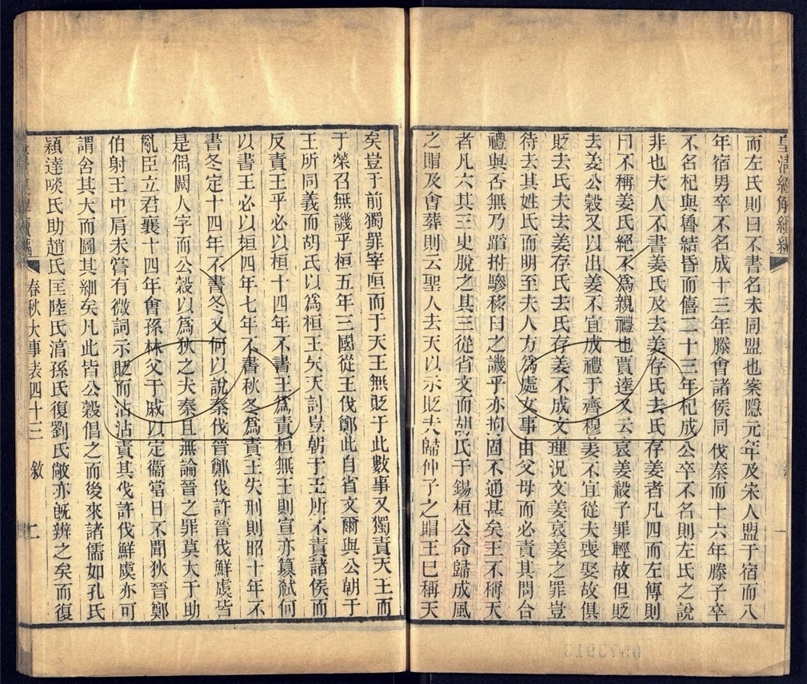 而左氏則曰不書名未同盟也案隱元年及宋人盟于宿而八
年宿男卒不名成十三年滕會諸侯同伐秦而十六年滕子卒
不名杞與魯結昏而僖二十三年杞成公卒不名則左氏之說
非也夫人不書姜氏及去姜存氏去氏存姜者凡四而左傳則
曰不稱姜氏絕不為親禮也賈逵又云哀姜殺子罪輕故但貶
去姜公穀又以出姜不宜成禮于齊穆姜不宜從夫喪娶故俱
貶去氏夫去姜存氏去氏存姜不成文理況文姜哀姜之罪豈
待去其姓氏而明至夫人方為處女事由父母而必責其問合
禮與否無乃蹈拊驂移臼之譏乎亦拘固不通甚矣王不稱天
者凡六其三史脫之其三從省文而胡氏于錫桓公命歸成風
之賵及會葬則云聖人去天以示貶夫歸仲子之賵王已稱天
皇清經解續編
矣豈于前獨罪宰咺而于天王無貶于此數事又獨責天王而
于榮召無譏乎桓五年三國從王伐鄭此自省文爾與公朝于
王所同義而胡氏以為桓王失天討豈朝于王所不責諸侯而
反責王乎必以桓十四年不書王為責桓無王則宣亦篡弒何
以書王必以桓四年七年不書秋冬為責王失刑則昭十年不
書冬定十四年不書冬又何以說秦伐晉鄭伐許晉伐鮮虞皆
是偶闕人字而公穀以為狄之夫秦且無論晉之罪莫大于助
亂臣立君襄十四年會孫林父于戚以定衞當日不聞狄晉鄭
伯射王中肩未嘗有微詞示貶而沾沾責其伐許伐鮮虞亦可
謂舍其大而圖其細矣凡此皆公穀倡之而後來諸儒如孔氏
穎達啖氏助趙氏匡陸氏淳孫氏復劉氏敞亦旣辨之矣而復
春秋大事表四十三 敘